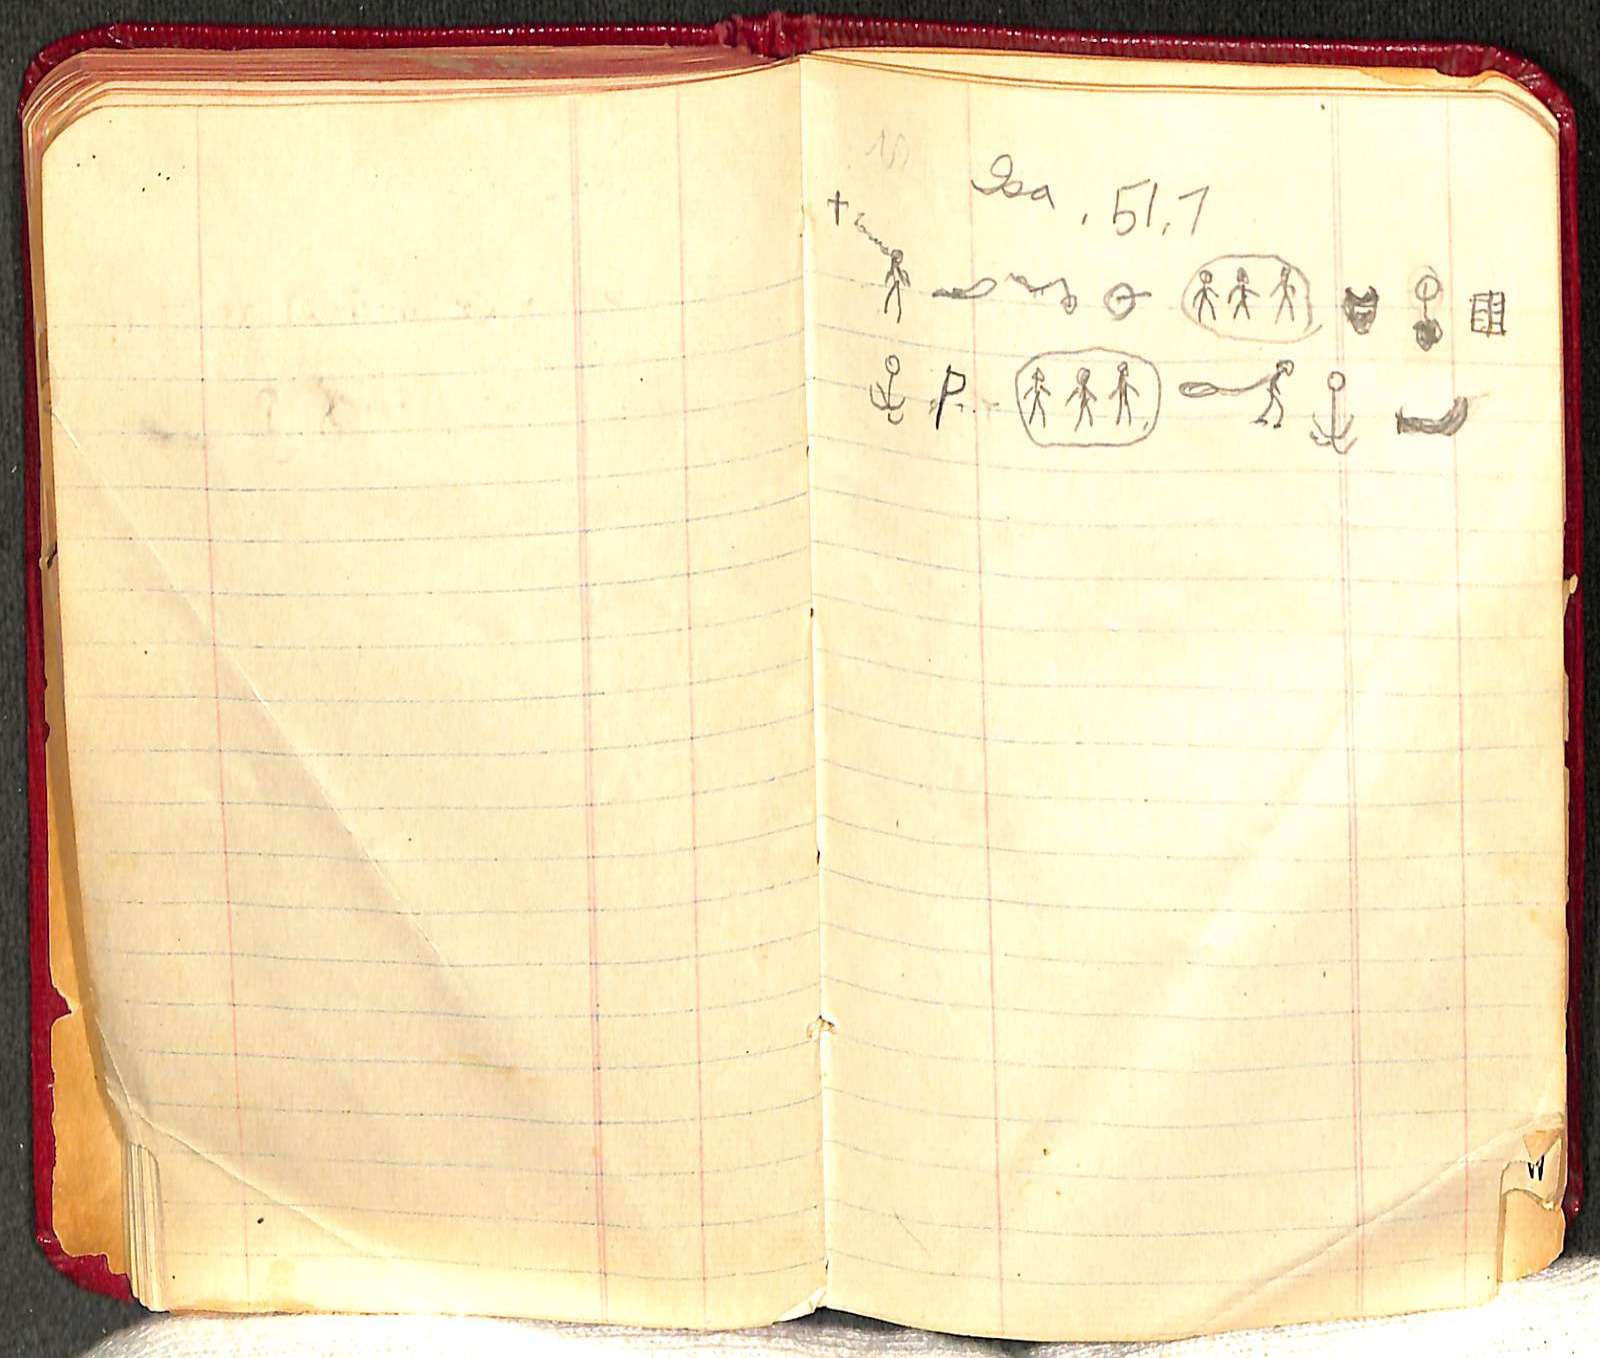 Isa. 51.7
P
W